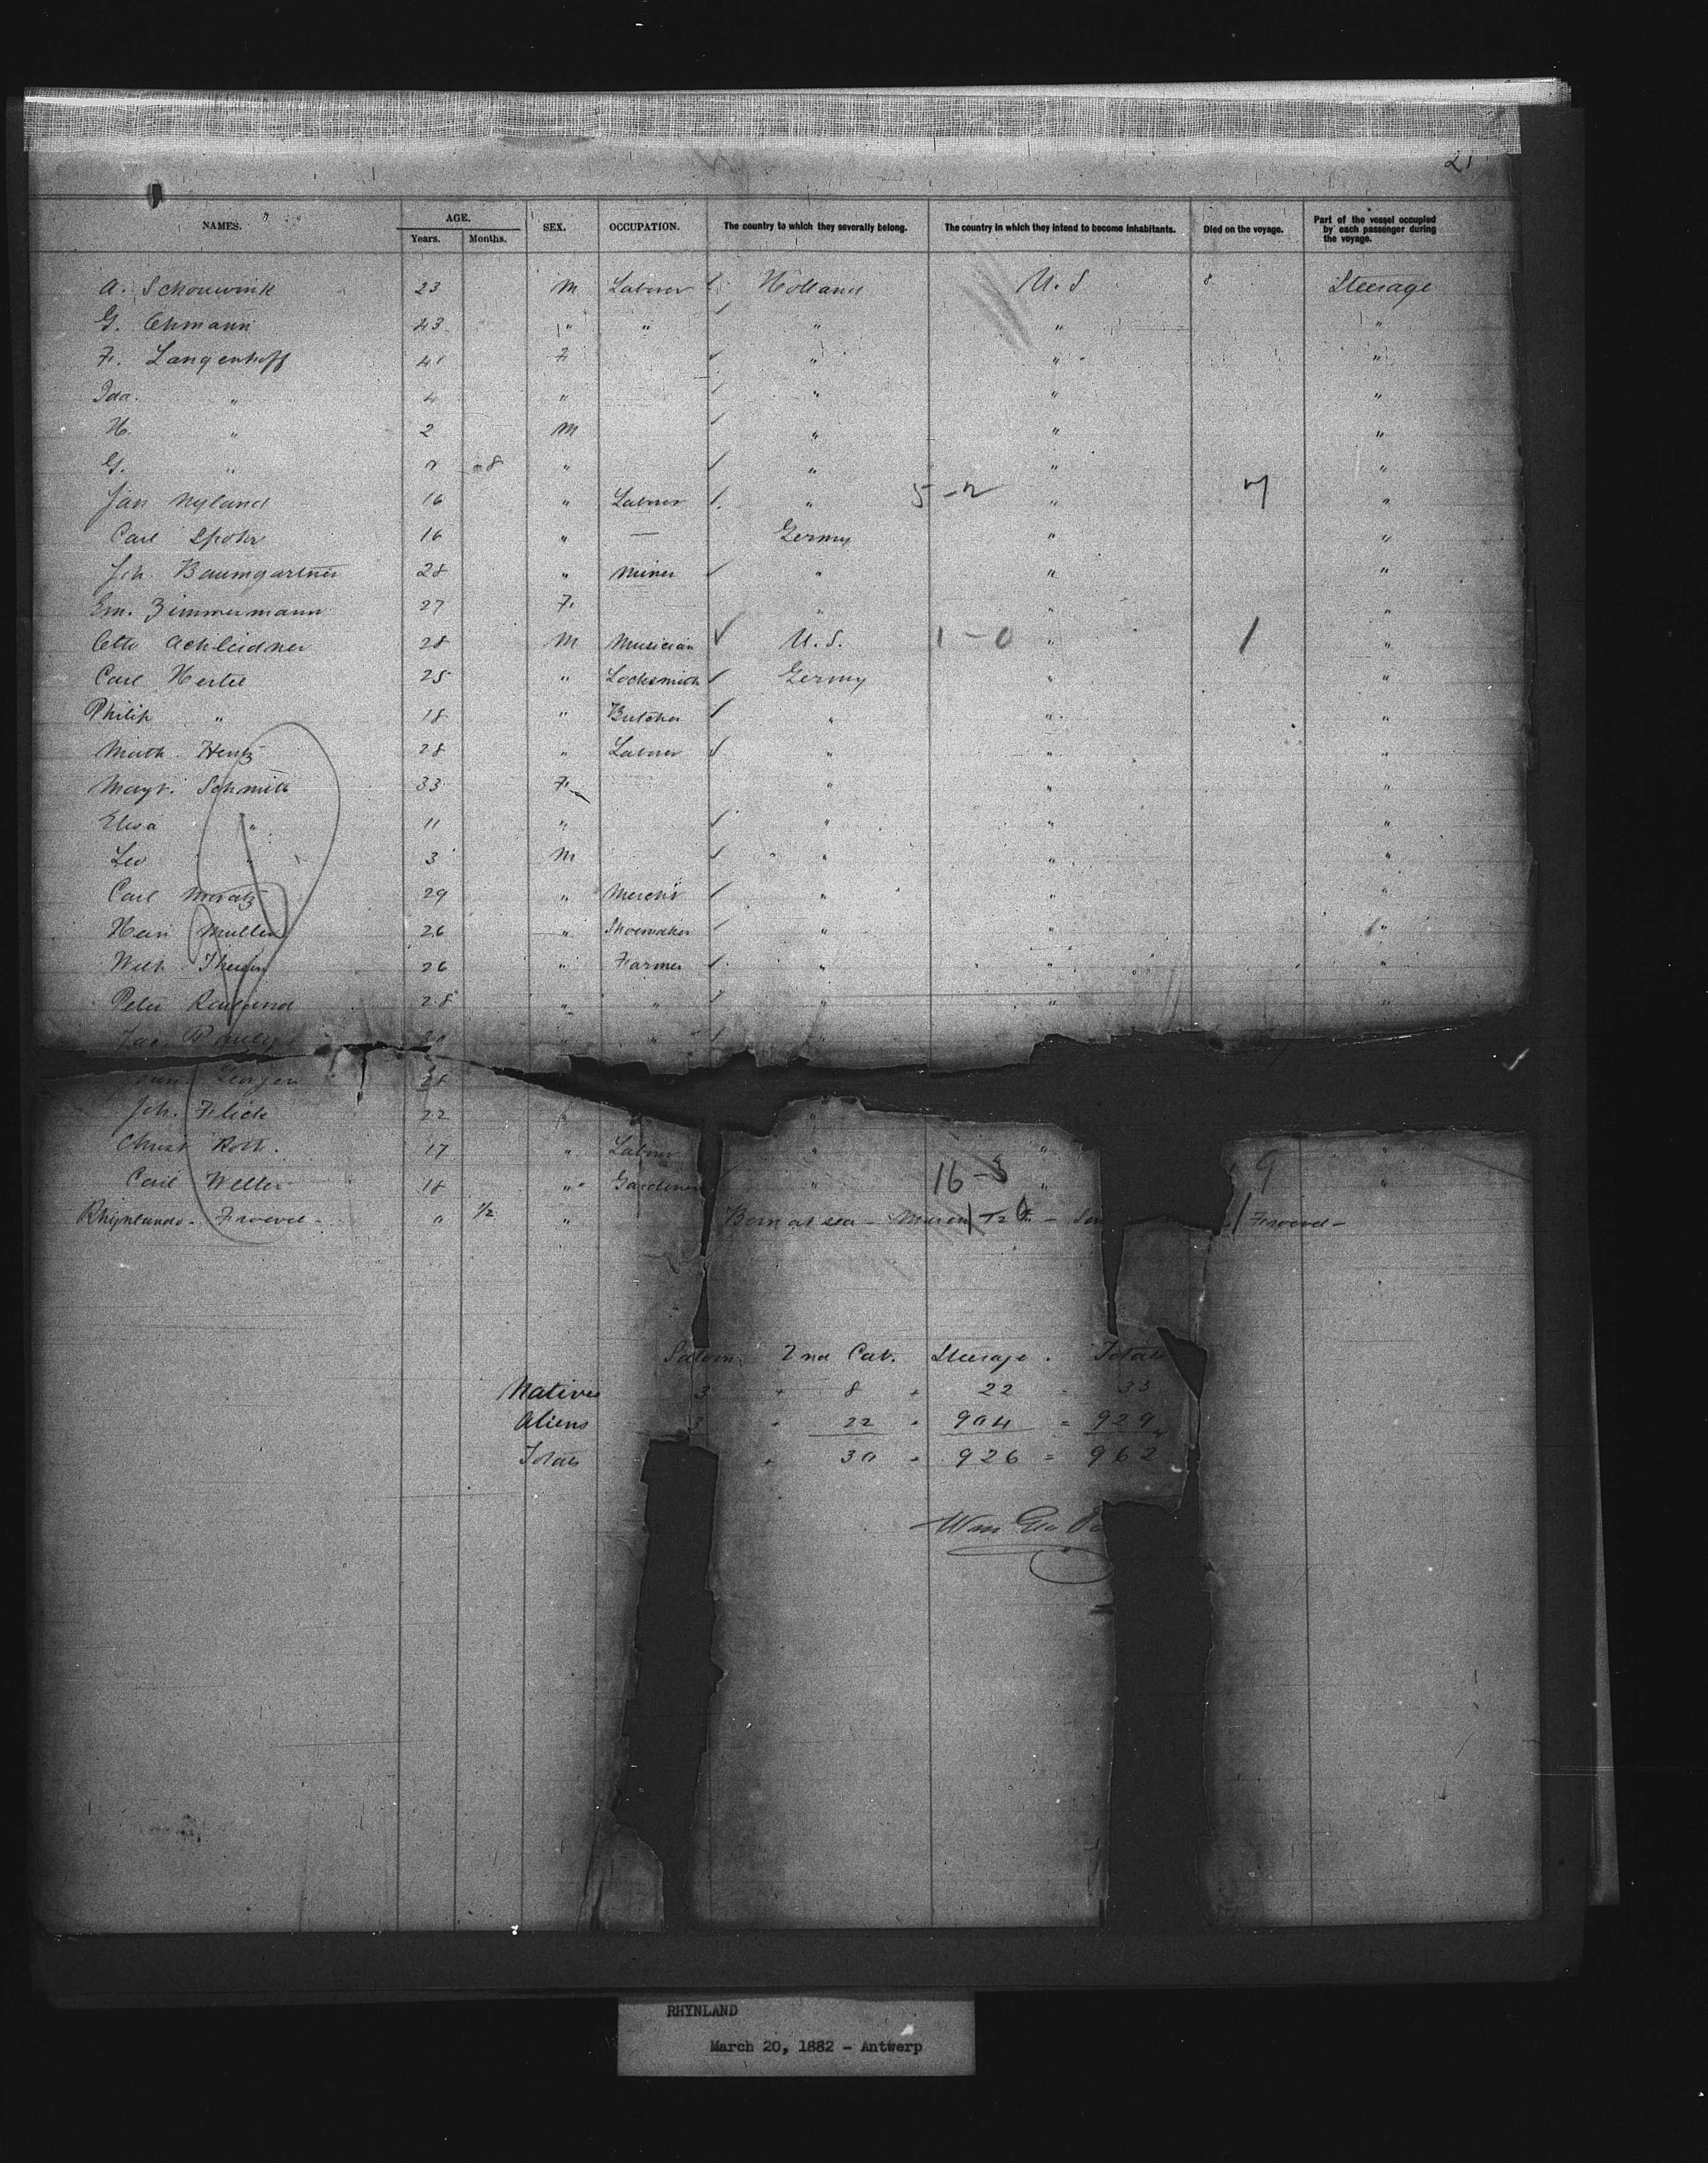 21
NAMES. AGE. SEX. OCCUPATION. The country to which they severally belong. The country in which they intend to become inhabitants. Died on the voyage. Part of the vessel occupied by each passenger during the voyage.
Years. Months.
A. Schouwink 23 M Laborer Holland U.S Steerage
G. Ehmann 43 " " " " "
F. Langenhoff 41 F " " "
Ida " 4 " " " "
H. " 2 M " " "
G. " " 8 " " " "
Jan Nyland 16 " Laborer " 5-2 " 7 "
Carl Spohr 16 " — Germy " "
Joh. Baumgartner 28 " Miner " " "
Em. Zimmermann 27 F. " " "
Otto Achleidner 28 M Musician U.S. 1-0 " 1 "
Carl Hertel 25 " Locksmith Germy " "
Philip " 18 " Butcher " " "
Math. Hentz 28 " Laborer " " "
Magt. Schmitt 33 F. " " "
Elisa " 11 " " " "
Leo " 3 M " " "
Carl 29 " Mercht " " "
Heri Muller 26 " Shoemaker " " "
Wilh 26 " Farmer " " "
Peter 28 " " " " "
Jac. Pauly " "
28
Joh. Flick 22 "
Christ Roth. 17 " Laborer " " "
Carl Weller 18 " Gardener " 16-3 " 9
Rhynlande Froevel - " 1/2 " Born at sea - March 1-0 - 1 Froevel -
Saloon 2nd Cab. Steerage. Total
Natives 3 + 8 + 22 = 33
Aliens 3 + 22 + 904 = 929
Totals + 30 + 926 = 962
RHYNLAND
March 20, 1882 - Antwerp